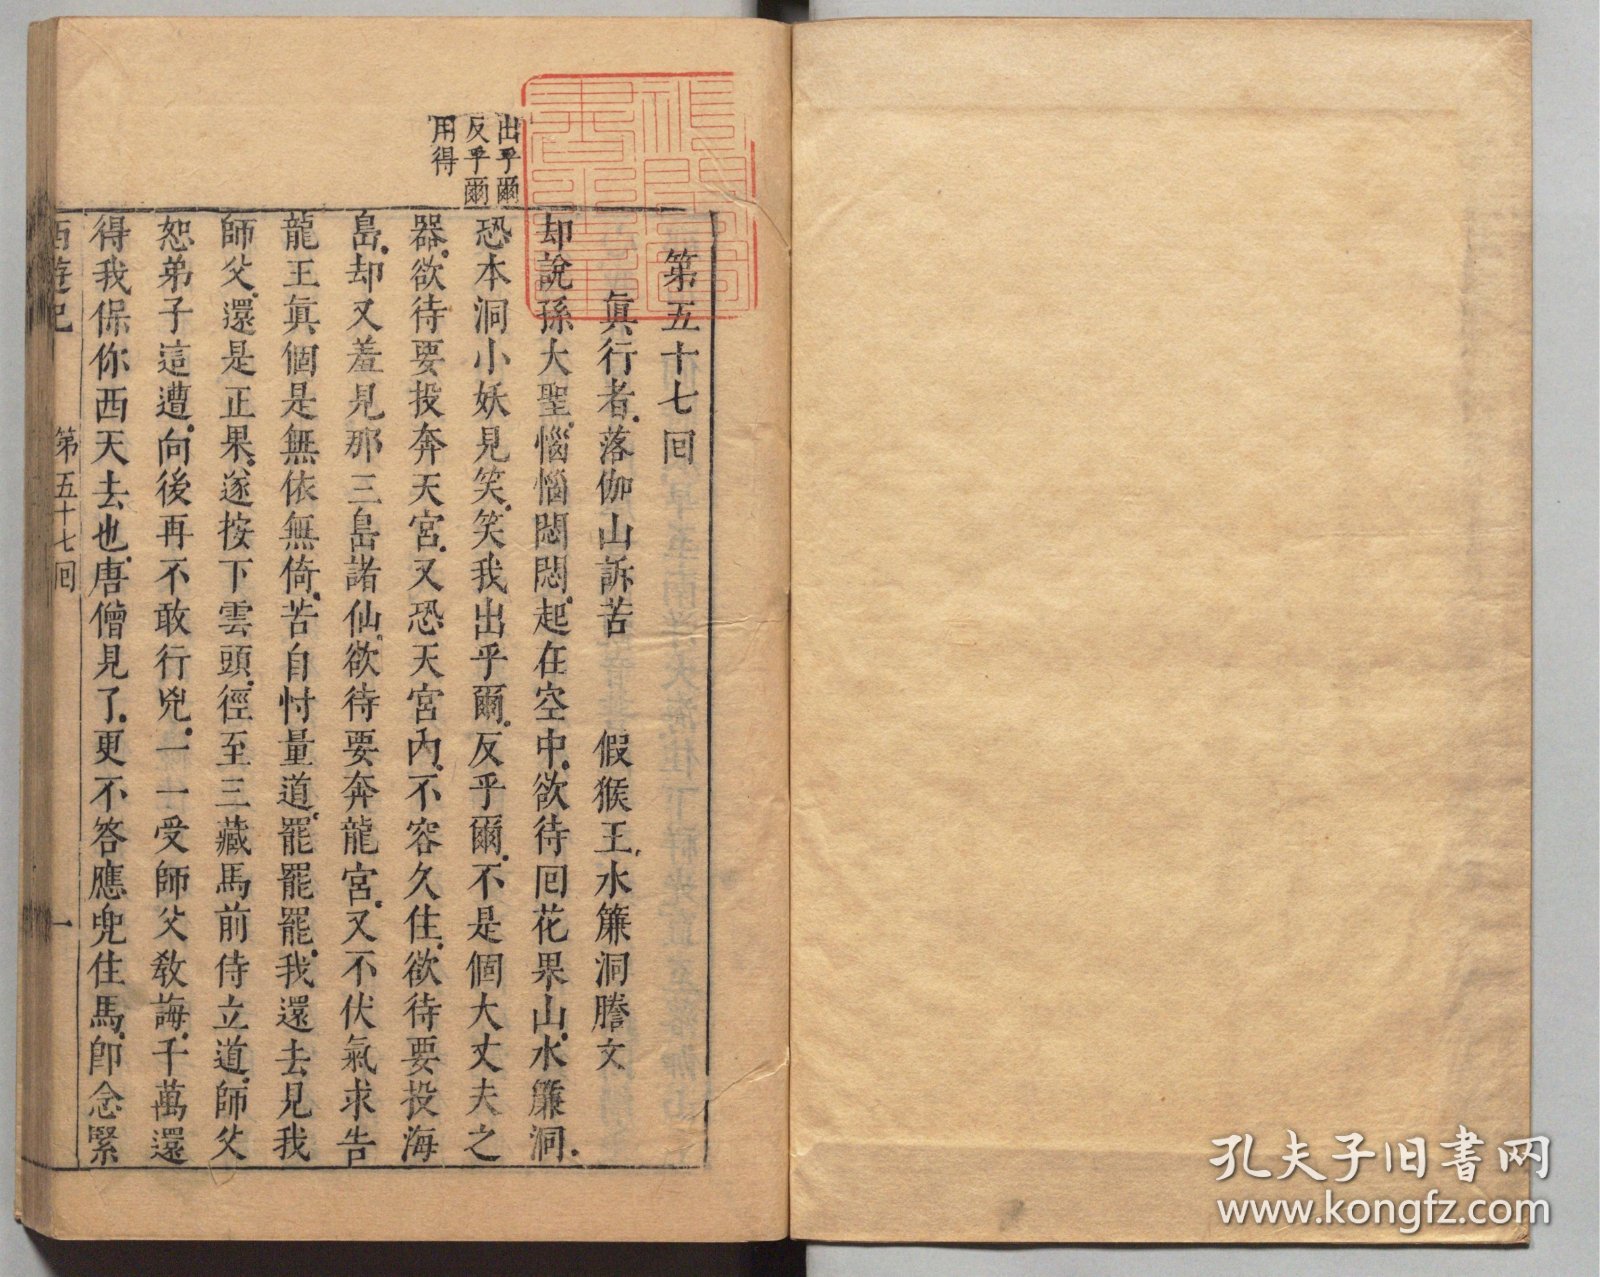 第五十七回
眞行者落伽山訴苦　假猴王水簾洞謄文
却說孫大聖惱惱悶悶起在空中欲待回花果山水簾洞
恐本洞小妖見笑笑我出乎爾反乎爾不是個大丈夫之
器欲待要投奔天宮又恐天宮內不容久住欲待要投海
島却又羞見那三島諸仙欲待要奔龍宮又不伏氣求告
龍王眞個是無依無倚苦自忖量道罷罷罷我還去見我
師父還是正果遂按下雲頭徑至三藏馬前侍立道師父
恕弟子這遭向後再不敢行兇一一受師父教誨千萬還
得我保你西天去也唐僧見了更不答應兜住馬卽念緊
出乎爾
反乎爾
用得
西遊記　第五十七回　一
孔夫子旧书网
www.kongfz.com